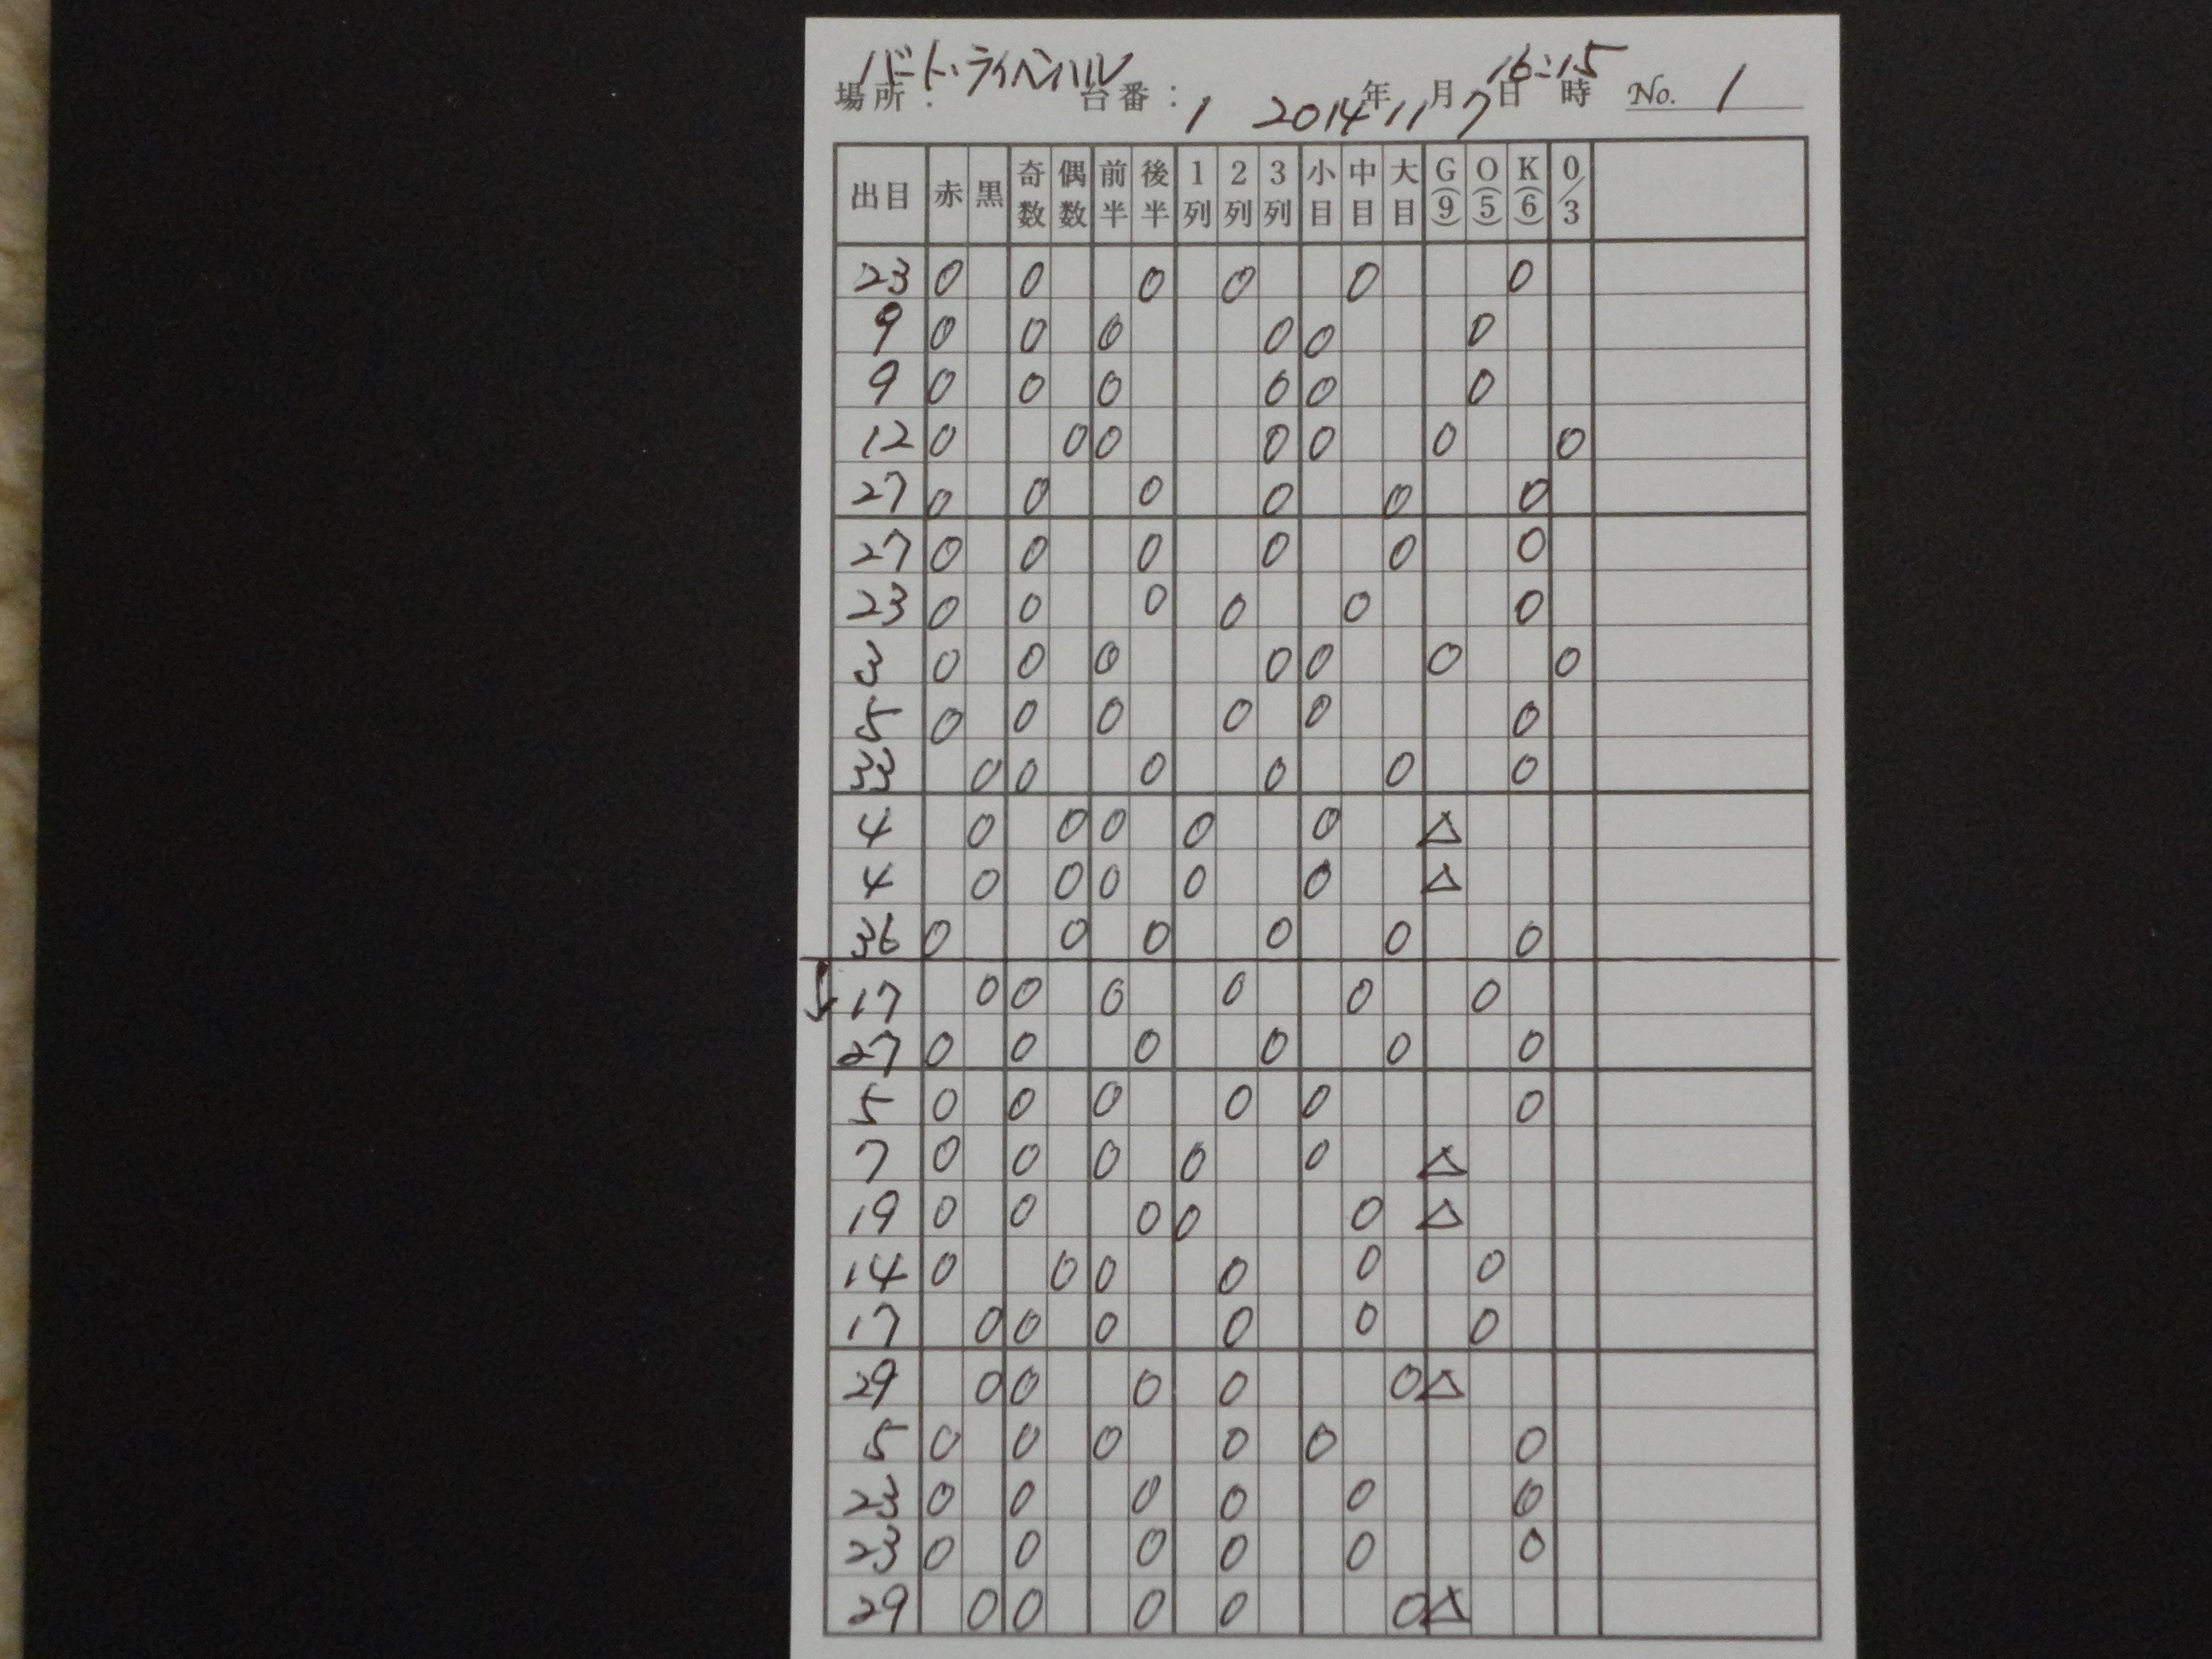 バート・ライヘンハル 16:15
場所： 台番： 1 2014年11月7日 時 No. 1
出目 赤 黒 奇数 偶数 前半 後半 1列 2列 3列 小目 中目 大目 G(9) O(5) K(6) 0/3
23 0 0 0 0 0 0
9 0 0 0 0 0 0
9 0 0 0 0 0 0
12 0 0 0 0 0 0 0
27 0 0 0 0 0 0
27 0 0 0 0 0 0
23 0 0 0 0 0 0
3 0 0 0 0 0 0 0
5 0 0 0 0 0 0
33 0 0 0 0 0 0
4 0 0 0 0 0 △
4 0 0 0 0 0 △
36 0 0 0 0 0 0
↓ 17 0 0 0 0 0 0
27 0 0 0 0 0 0
5 0 0 0 0 0 0
7 0 0 0 0 0 △
19 0 0 0 0 0 △
14 0 0 0 0 0 0
17 0 0 0 0 0 0
29 0 0 0 0 0 △
5 0 0 0 0 0 0
23 0 0 0 0 0 0
23 0 0 0 0 0 0
29 0 0 0 0 0 △